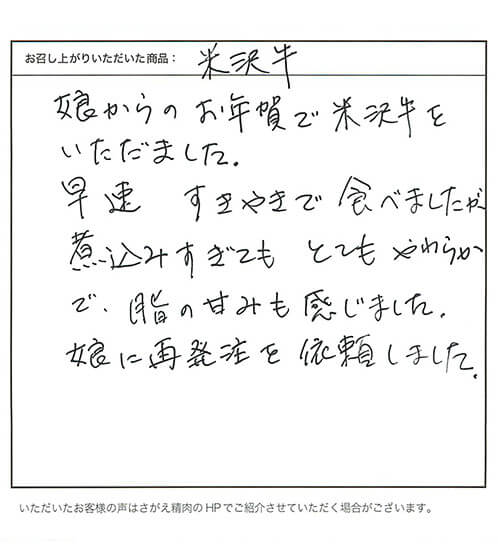 お召し上がりいただいた商品： 米沢牛
娘からのお年賀で米沢牛を
いただました.
早速 すきやきで食べましたが、
煮込みすぎても とても やわらか
で、脂の甘みも感じました.
娘に再発注を依頼しました.
いただいたお客様の声はさがえ精肉のHPでご紹介させていただく場合がございます。